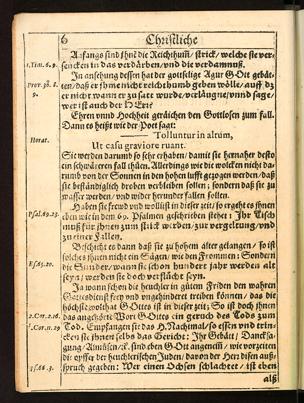 6 Christliche
Anfangs sind ihnē die Reichthum̃/ strick/ welche sie ver-
1.Tim. 6. 9.
sencken in das verdårben/ und die verdamnuß.
In ansehung dessen hat der gottselige Agur GOtt gebåt-
Prov. 30. 8.
9.
ten/ daß er ihme nicht reichthumb geben wölle/ auff dz
er nicht wann er zu satt wurde/ verlåugne/ unnd sage/
wer ist auch der HErr?
Ehren unnd Hochheit gerahten den Gottlosen zum fall.
Dann es heißt wie der Poet sagt:
Horat.
Tolluntur in altum,
Ut casu graviore ruant.
Sie werden darumb so sehr erhaben/ damit sie hernaher desto
ein schwåreren fall thůen. Allerdings wie die wolcken nicht da-
rumb von der Sonnen in den hohen lufft gezogen werden/ daß
sie beståndiglich droben verbleiben sollen; sondern daß sie zu
wasser werden/ und wider herunder fallen sollen.
Haben sie freud und wollust in dieser zeit/ so ergeht es ihnen
Psal. 69. 23.
eben wie in dem 69. Psalmen geschrieben stehet: Ihr Tisch
muß für ihnen zum strick werden/ zur vergeltung/ und
zu einer Fallen.
Beschicht es dann daß sie zu hohem alter gelangen/ so ist
solches ihnen nicht ein Sågen/ wie den Frommen: Sondern
Es. 65. 20.
die Sünder/ wann sie schon hundert jahr werden alt
seyn/ werden sie doch verflucht seyn.
Ja wann schon die heuchler in gůtem friden den wahren
Gottesdienst frey und ungehindert treiben können/ das die
höchste wolthat Gottes ist in dieser zeit; So ist doch ihnen
2. Cor. 2. 16.
das angehörte Wort GOttes ein geruch des Tods zum
1. Cor. 11. 29
Tod. Empfangen sie das H. Nachtmal/ so essen und trin-
cken sie ihnen selbs das Gericht: Ihr Gebått/ Dancksa-
gung/ Almůsen/ etc. sind eben GOtt angenem̃/ wie vorzeiten
die opffer der heuchlerischen Juden/ davon der Herr disen auß-
Es. 66. 3.
spruch gegeben: Wer einen Ochsen schlachtet/ ist eben
alß